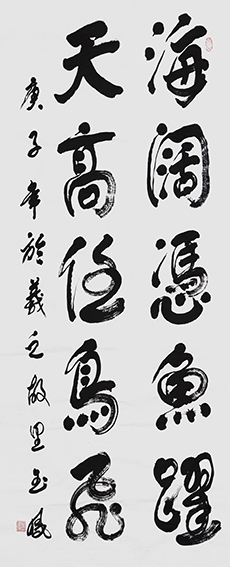 海闊憑魚躍
天高任鳥飛
庚子年於羲之故里玉鳳